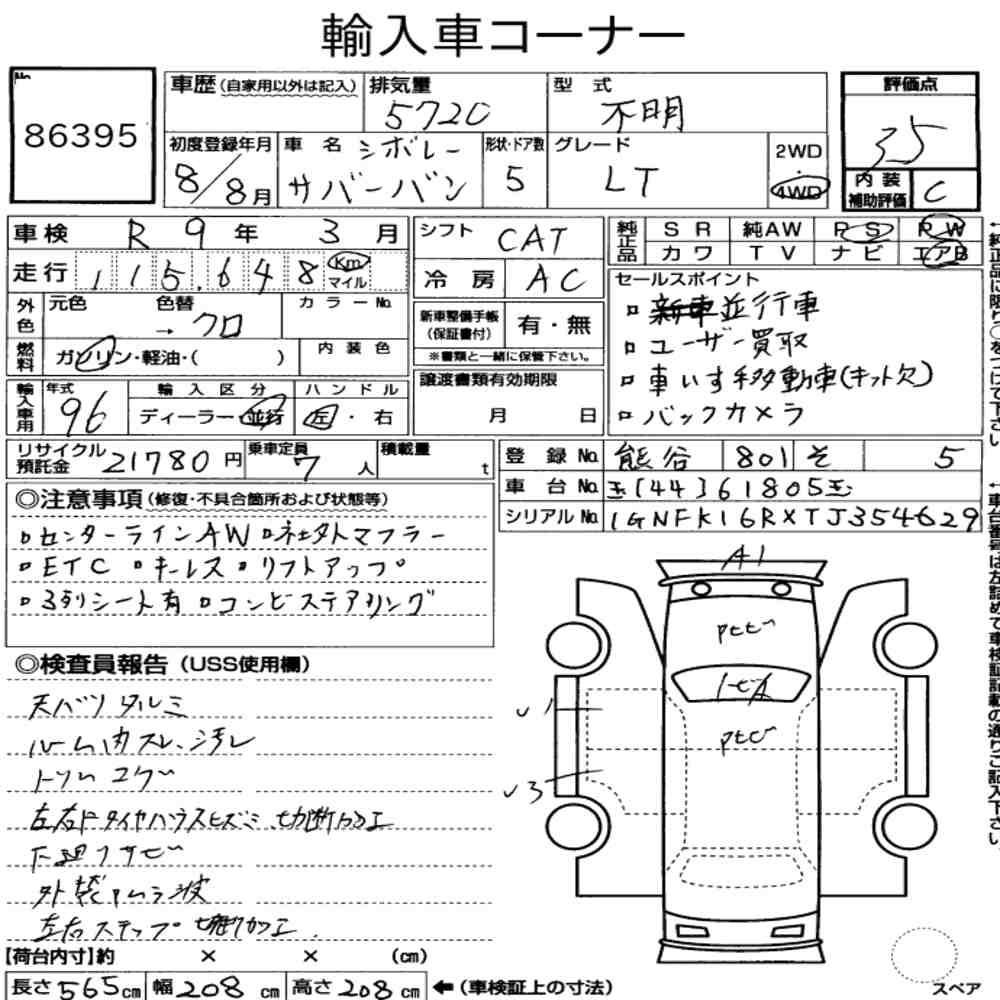 輸入車コーナー
No
86395
車歴 (自家用以外は記入)
排気量
5720
型式
不明
評価点
3.5
初度登録年月
8/8月
車名
シボレー
サバーバン
形状・ドア数
5
グレード
LT
2WD
・
4WD
内装
補助評価
C
車検 R 9年 3月
シフト CAT
純正品
SR 純AW PS PW
カワ TV ナビ エアB
走行 115,648 Km
マイル
冷房 AC
セールスポイント
▫ 新車並行車
▫ ユーザー買取
▫ 車いす移動車(キット欠)
▫ バックカメラ
外色
元色 色替 カラーNo.
→ クロ
新車整備手帳
(保証書付)
有・無
※書類と一緒に保管下さい。
燃料
ガソリン・軽油・( )
内装色
譲渡書類有効期限
月 日
輸入車用
年式
96
輸入区分
ディーラー・並行
ハンドル
左・右
リサイクル
預託金
21780円
乗車定員
7人
積載量
t
登録No. 熊谷 801 そ 5
車台No. 玉[44]61805玉
シリアルNo. 1GNFK16RXTJ354629
◎注意事項 (修復・不具合箇所および状態等)
▫センターラインAW ▫社外マフラー
▫ETC ▫キーレス ▫リフトアップ
▫3列シート有 ▫コンビステアリング
◎検査員報告 (USS使用欄)
天バリ タルミ
ルーム内スレ、汚レ
トリム コゲ
左右Fタイヤハウスヒズミ、切断加工
下廻りサビ
外装ムラ波
左右ステップ切断加工.
A1
v1
v3
スペア
【荷台内寸】約 × × (cm)
長さ565cm 幅208cm 高さ208cm ←(車検証上の寸法)
↑純正品に限り○をつけて下さい
↑車台番号は左詰めで車検証記載の通りご記入下さい。